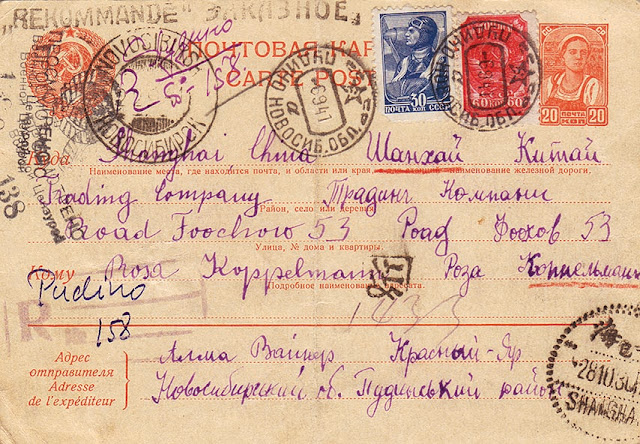 „REKOMMANDÉ" ЗАКАЗНОЕ
Пудино
R 158
ПОЧТОВАЯ КАР
CARTE POS
30
ПОЧТА СССР КОП
60 КОП 60
20 ПОЧТА КОП 20
НОВОСИБИРСК
ПУДИНО НОВОСИБ. ОБЛ.
ПУДИНО НОВОСИБ. ОБЛ.
138
Куда Shanghai China Шанхай Китай
Наименование места, где находится почта, и области или края, наименование железной дороги,
Trading Company Традинг Компани
Район, село или деревня
Road Foochow 53 Роад Фоохов 53
Улица, № дома и квартиры.
Кому Rosa Koppelmann Роза Коппельман
Подробное наименование адресата.
Pudino
158
R
1833
Адрес отправителя
Adresse de l'expéditeur
Алма Вайнер Красный-Яр
Новосибирский об. Пудинський район
SHANGHA